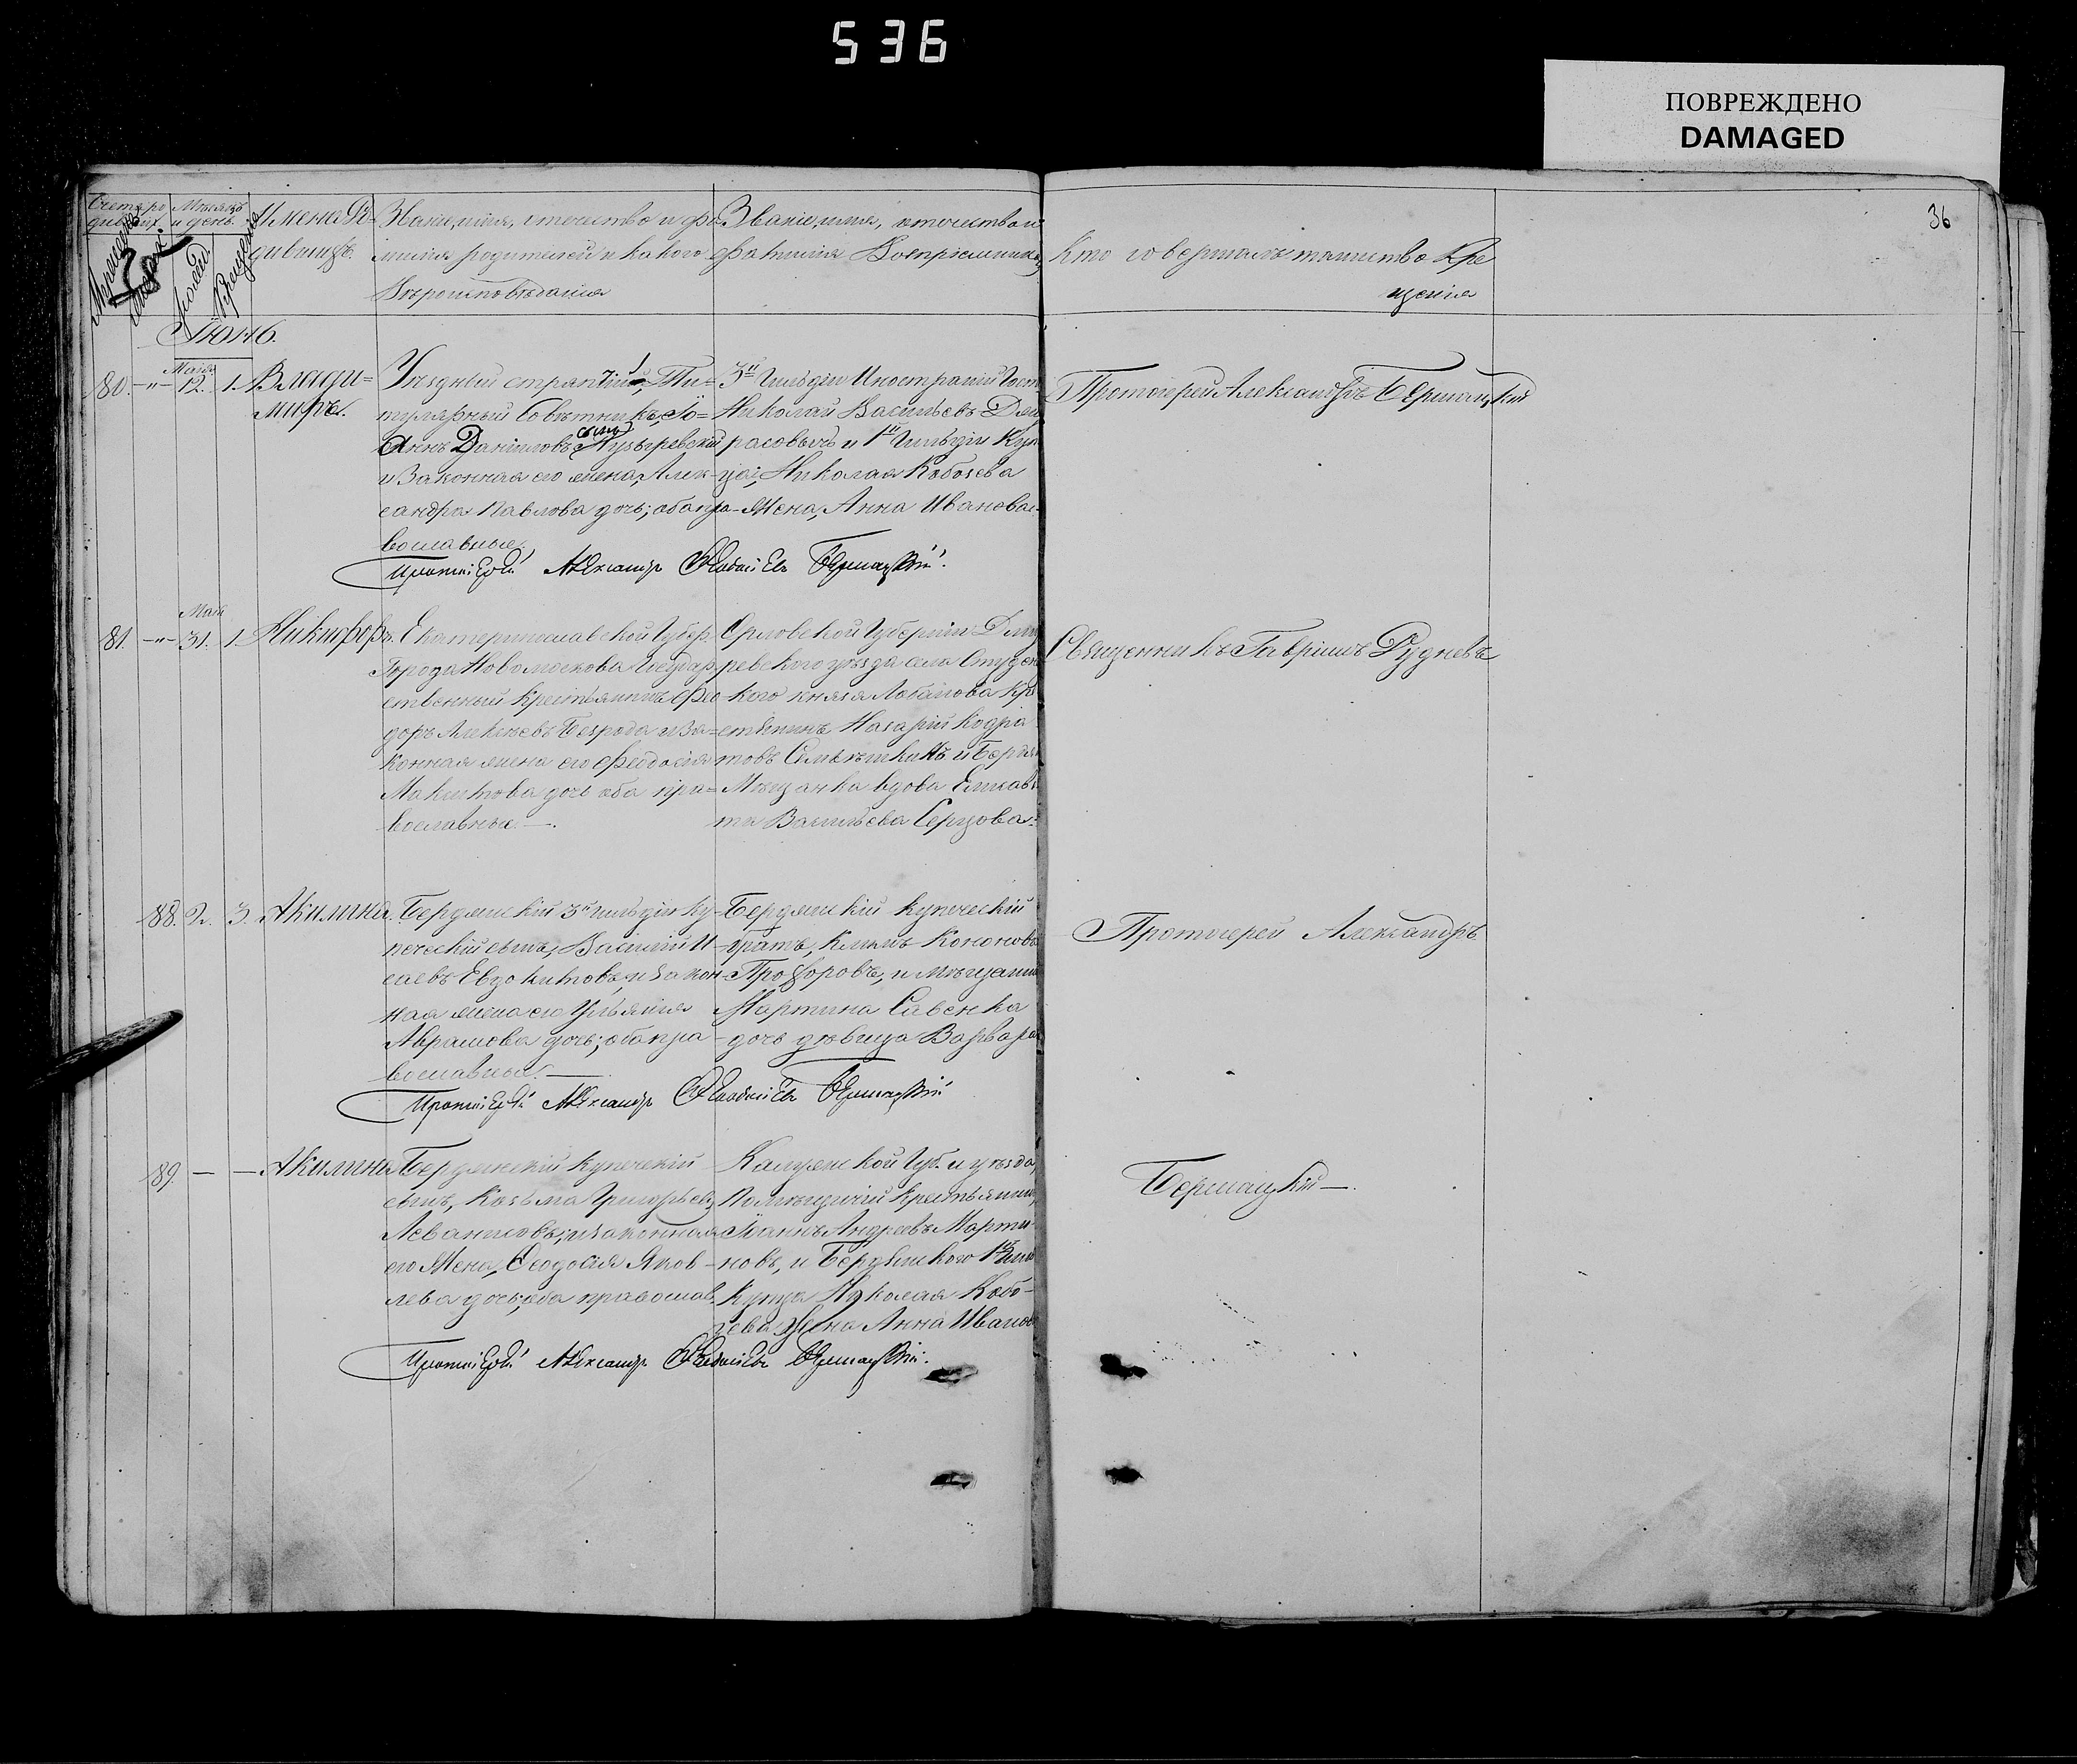 536
ПОВРЕЖДЕНО
DAMAGED
36
Имена Ро=
дившихъ.
Званіе, имя, отечество и фа
милія родителей и какого
Вѣроисповѣданія
Званіе, имя, отечество и
Фамилія Воспріемниковъ
Кто совершалъ таинство Кре
щенія
Іюнь.
80. -„- Маія 12. 1. Влади=
миръ.
Уѣздный стряпчій, Ти=
тулярный Совѣтникъ, Іо=
аннъ Даніиловъ сынъ
и Законная его жена, Алек-
сандра Павлова дочь; оба пра-
вославные.
3й Гильдіи Иностраній Гост
Николай Васильевъ
и 1й Гильдіи Куп
Николая Кобозева
Жена, Анна Иванова.
Протоіерей Александръ Бершацкій
Протоіерей Александръ Бершацкій.
81. -„- Маія 31. 1. Никифоръ.
Екатеринославской Губер.
Города Новомосковска Государ
ственный Крестьянинъ Фео
доръ Алексѣевъ Безрода и За=
конная жена его Феодосія
Макситова дочь оба пра=
вославные. —.
Орловской Губерніи Дмит
ровского уѣзда села Студен
кого князя Лобанова Кре
стьянинъ Назарій Кодра
товъ и Бердян
Мѣщанка вдова Елисаве
та Васильева Серцова.
Священникъ Гавріилъ Рудневъ
88. 2. 3. Акилина.
Бердянскій 3й гильдіи Ку-
печескій сынъ, Василій И-
саевъ Евдокимовъ, и Закон-
ная жена его Ульянія
Аврамова дочь; оба пра-
вославные. —
Бердянскій Купеческій
братъ, Климъ Кононовъ
Прохоровъ, и Мѣщанина
Мартина Савенка
дочь дѣвица Варвара
Протоіерей Александръ
Протоіерей Александръ Бершацкій
89. — — Акилина
Бердянскій Купеческій
сынъ, Козьма Григорьевъ
Левантовъ, и законная
его Жена, Ѳеодосія Яков-
лева дочь, оба православ.
Калужской Губ. и уѣзда,
Помѣщичій Крестьянинъ,
Іоаннъ Андреевъ Марти-
новъ, и Бердянского 1й Гиль
Купца Николая Кобо-
зева жена Анна Иванов
Бершацкій —.
Протоіерей Александръ Бершацкій.